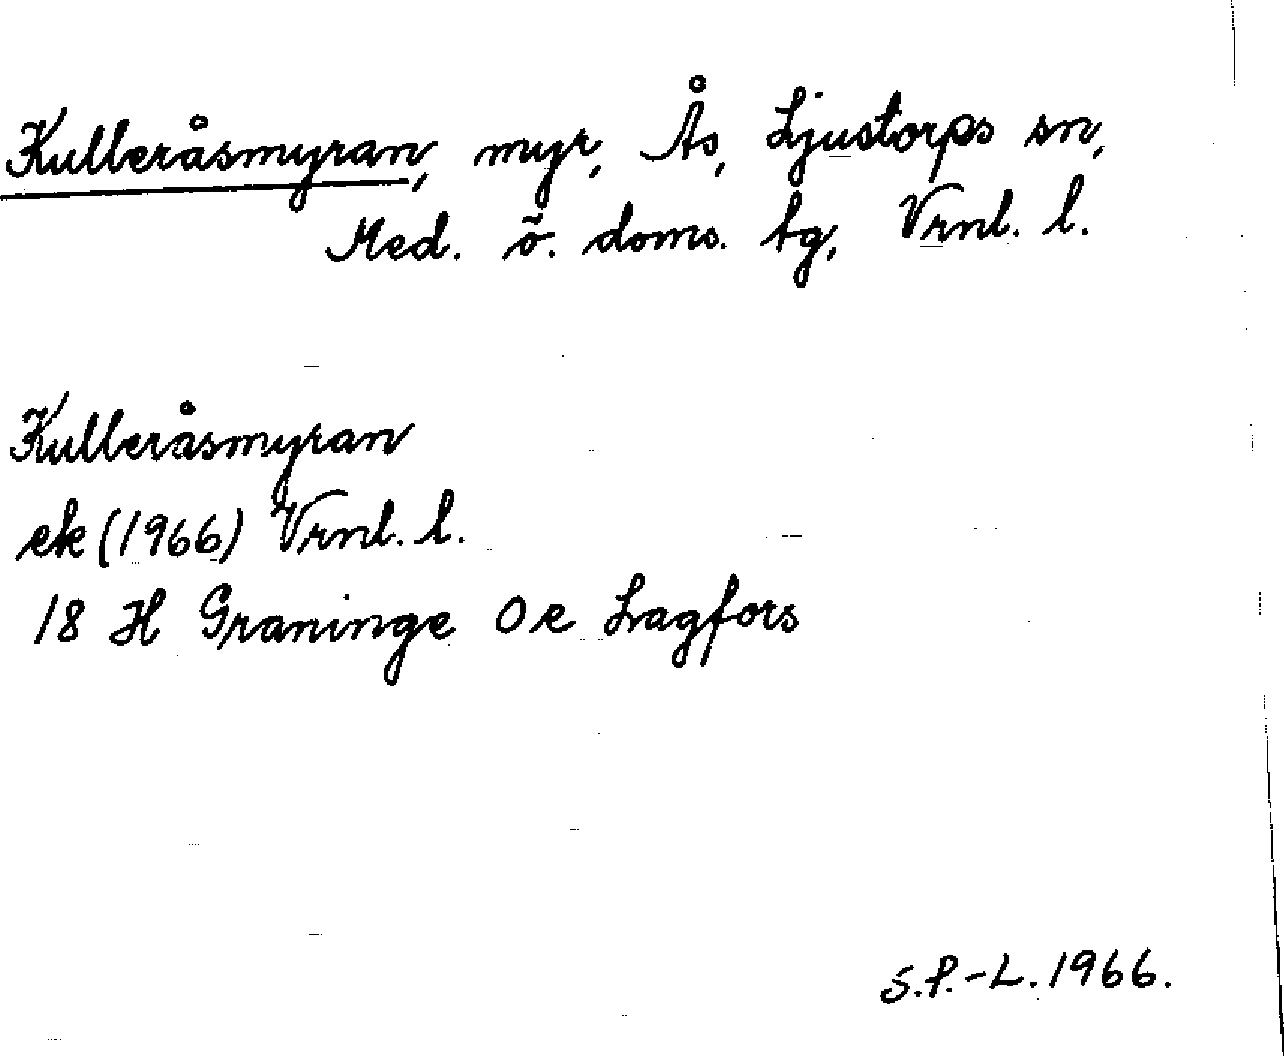 Kulleråsmyran, myr, Ås, Ljustorps sn,
Med. ö. doms. tg, Vrnl. l.
Kulleråsmyran
ek (1966) Vrnl. l.
18 H Graninge O e Lagfors
S.P.-L. 1966.